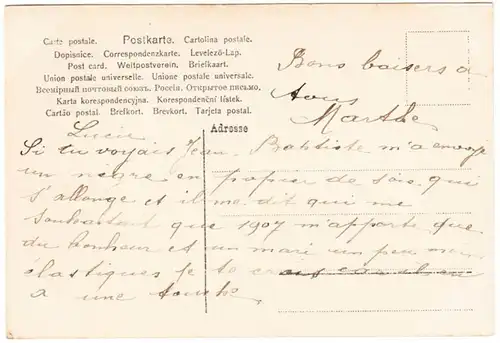 Carte postale. Postkarte. Cartolina postale.
Dopisnice. Correspondenzkarte. Levelező-Lap.
Post card. Weltpostverein. Briefkaart.
Union postale universelle. Unione postale universale.
Всемірный почтовый союзъ. Россіи. Открытое письмо.
Karta korespondencyjna. Korespondenční lístek.
Cartão postal. Brefkort. Brevkort. Tarjeta postal.
Adresse
Bons baisers a
tous
Marthe
Lucie
Si tu voyais Jean Baptiste m'a envoye
un negre en papier de soie qui
s'allonge et il me dit qui me
souhaitant que 1907 m'apporte que
du bonheur et un mari un peu
élastiques je te
a une